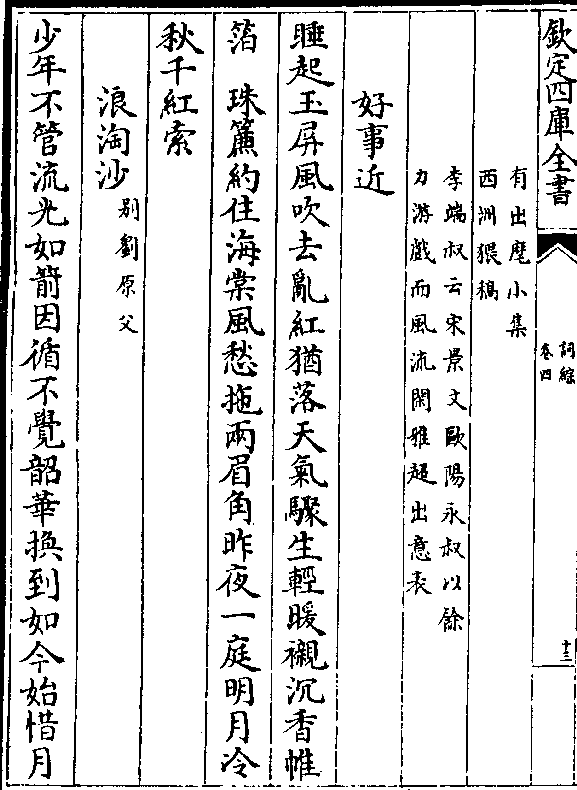 欽定四庫全書
詞綜
卷四
十三
有出麾小集
西洲猥稿
李端叔云宋景文歐陽永叔以餘
力游戲而風流閑雅超出意表
好事近
睡起玉屏風吹去亂紅猶落天氣驟生輕暖襯沉香帷
箔　珠簾約住海棠風愁拖兩眉角昨夜一庭明月冷
秋千紅索
浪淘沙别劉原父
少年不管流光如箭因循不覺韶華換到如今始惜月